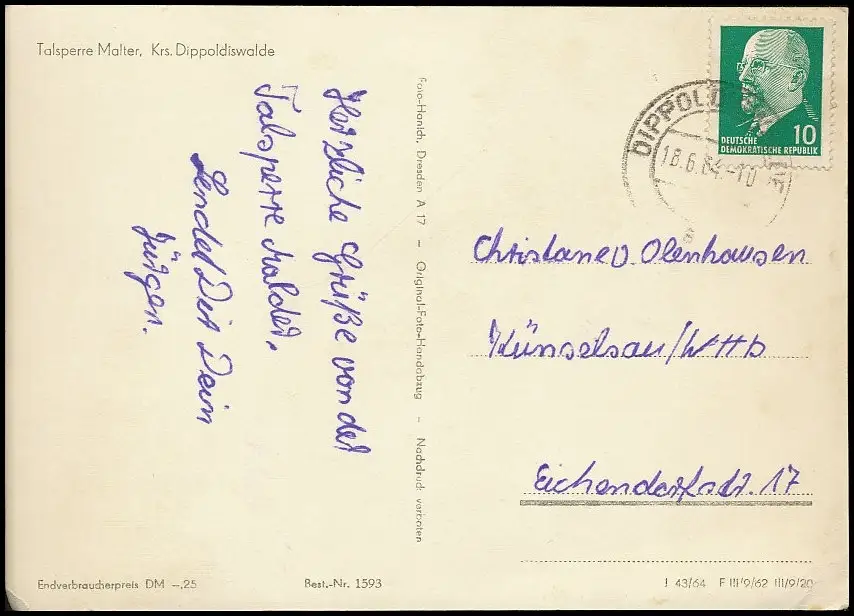 Talsperre Malter, Krs. Dippoldiswalde
Herzliche Grüße von der
Talsperre Malder.
Sendet Dir Dein
Jürgen.
Foto-Hanich, Dresden A 17 – Original-Foto-Handabzug – Nachdruck verboten
DEUTSCHE
DEMOKRATISCHE REPUBLIK
10
DIPPOLDIS
18.6.64.-10
Christane v. Olenhausen
Künselsau/Wttb
Eichendorfstr. 17
Endverbraucherpreis DM –,25
Best.-Nr. 1593
I 43/64 F III/9/62 III/9/20